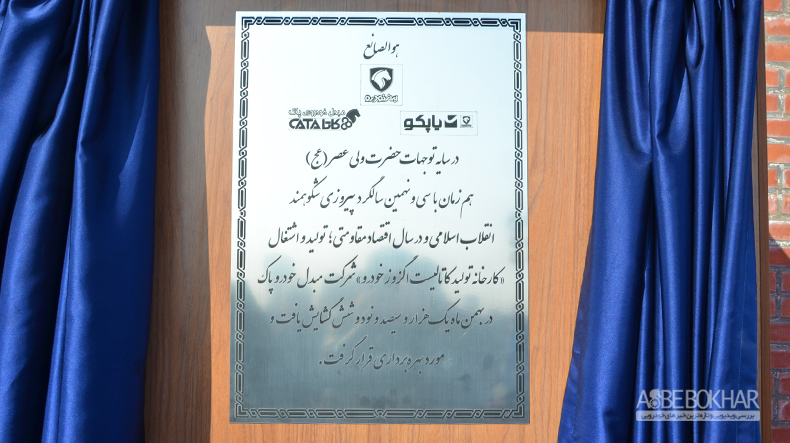 هوالصانع
ایران‌خودرو
مبدل خودروی پاک
کاتا CATA
یاپکو
در سایه توجهات حضرت ولی عصر (عج)
هم زمان با سی و نهمین سالگرد پیروزی شکوهمند
انقلاب اسلامی و در سال اقتصاد مقاومتی؛ تولید و اشتغال
«کارخانه تولید کاتالیست اگزوز خودرو» شرکت مبدل خودرو پاک
در بهمن ماه یک هزار و سیصد و نود و شش گشایش یافت و
مورد بهره برداری قرار گرفت.
ASBE BOKHAR
بررسی ویدیویی و تازه‌ترین خبرهای خودرویی